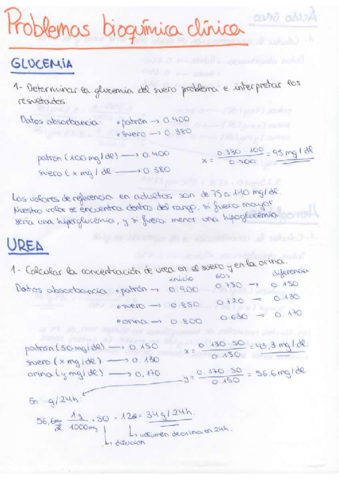 Problemas bioquímica clínica
GLUCEMIA
1- Determinar la glucemia del suero problema e interpretar los
resultados.
Datos absorbancia: *patrón → 0.400
*suero → 0.380
patrón (100 mg/dl) → 0.400
suero (x mg/dl → 0.380
x = 0.380 · 100 / 0.400 = 95 mg/dl
Los valores de referencia en adultos son de 75 a 110 mg/dl.
Nuestro valor se encuentra dentro del rango, si fuera mayor
sería una hiperglucemia, y si fuera menor una hipoglucemia
UREA
1- Calcular la concentración de urea en el suero y en la orina.
inicio 60s diferencia
Datos absorbancia *patrón → 0.900 0.750 → 0.150
*suero → 0.850 0.720 → 0.130
*orina → 0.800 0.630 → 0.170
patrón (50 mg/dl) → 0.150
suero (x mg/dl) → 0.130
orina (y mg/dl) → 0.170
x = 0.130 · 50 / 0.150 = 43,3 mg/dl
y = 0.170 · 50 / 0.150 = 56,6 mg/dl
En g/24h
56,6 mg/dl · 1g/1000mg · 50 · 12dl = 34g/24h
volumen de orina en 24h.
dilución